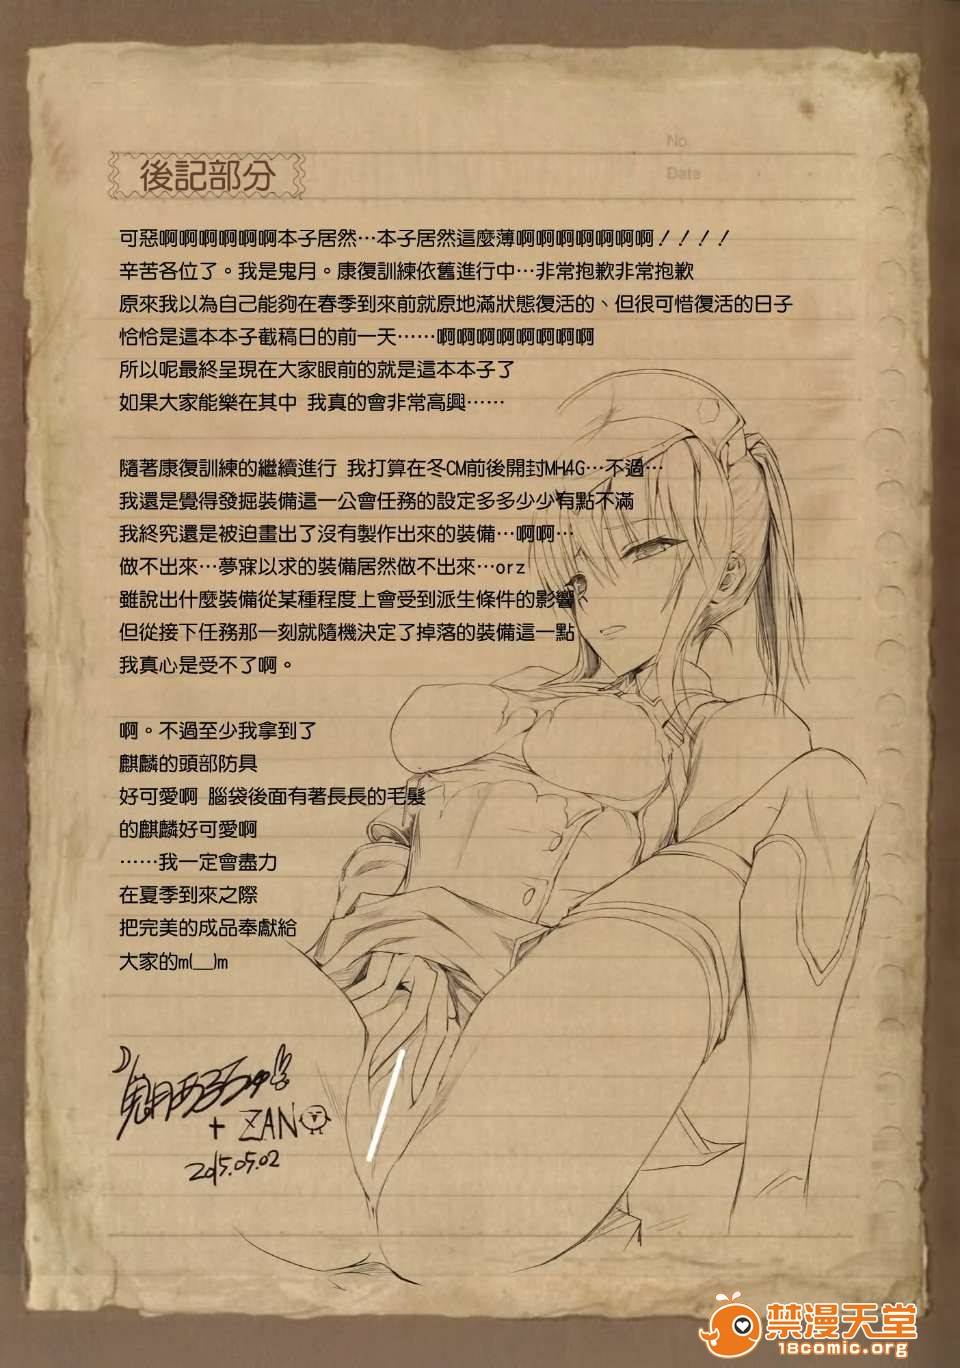 No.
Date
後記部分
可惡啊啊啊啊啊啊本子居然…本子居然這麼薄啊啊啊啊啊啊啊！！！！
辛苦各位了。我是鬼月。康復訓練依舊進行中…非常抱歉非常抱歉
原來我以為自己能夠在春季到來前就原地滿狀態復活的、但很可惜復活的日子
恰恰是這本本子截稿日的前一天……啊啊啊啊啊啊啊啊
所以呢最終呈現在大家眼前的就是這本本子了
如果大家能樂在其中 我真的會非常高興……
隨著康復訓練的繼續進行 我打算在冬CM前後開封MH4G…不過…
我還是覺得發掘裝備這一公會任務的設定多多少少有點不滿
我終究還是被迫畫出了沒有製作出來的裝備…啊啊…
做不出來…夢寐以求的裝備居然做不出來…orz
雖說出什麼裝備從某種程度上會受到派生條件的影響
但從接下任務那一刻就隨機決定了掉落的裝備這一點
我真心是受不了啊。
啊。不過至少我拿到了
麒麟的頭部防具
好可愛啊 腦袋後面有著長長的毛髮
的麒麟好可愛啊
……我一定會盡力
在夏季到來之際
把完美的成品奉獻給
大家的m(__)m
+ ZAN
2015.05.02
禁漫天堂
18comic.org